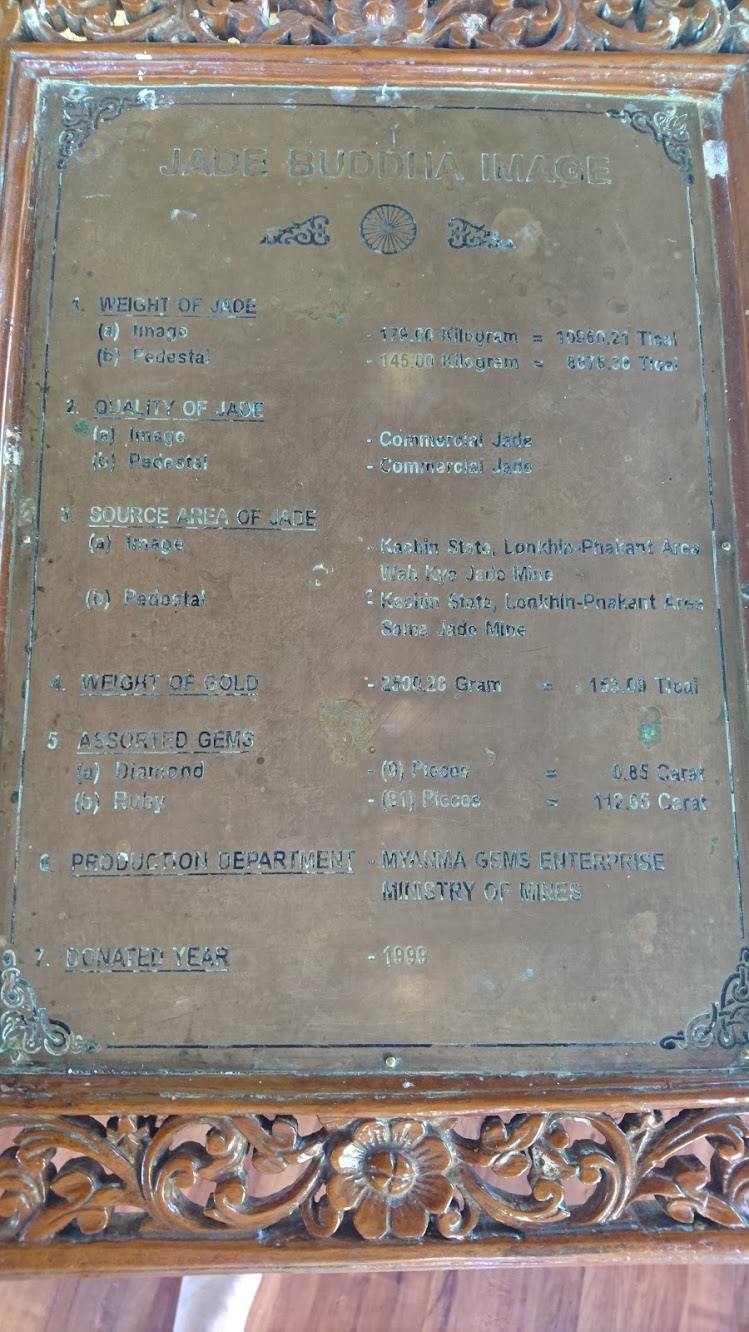 JADE BUDDHA IMAGE
1. WEIGHT OF JADE
(a) Image - 179.00 Kilogram = 10960.21 Tical
(b) Pedestal - 145.00 Kilogram = 8878.38 Tical
2. QUALITY OF JADE
(a) Image - Commercial Jade
(b) Pedestal - Commercial Jade
3. SOURCE AREA OF JADE
(a) Image - Kachin State, Lonkhin-Phakant Area
Wah Kye Jade Mine
(b) Pedestal - Kachin State, Lonkhin-Phakant Area
Jade Mine
4. WEIGHT OF GOLD - Gram = 153.09 Tical
5. ASSORTED GEMS
(a) Diamond - (9) Pieces = 0.85 Carat
(b) Ruby - (91) Pieces = Carat
6. PRODUCTION DEPARTMENT - MYANMA GEMS ENTERPRISE
MINISTRY OF MINES
7. DONATED YEAR - 1999